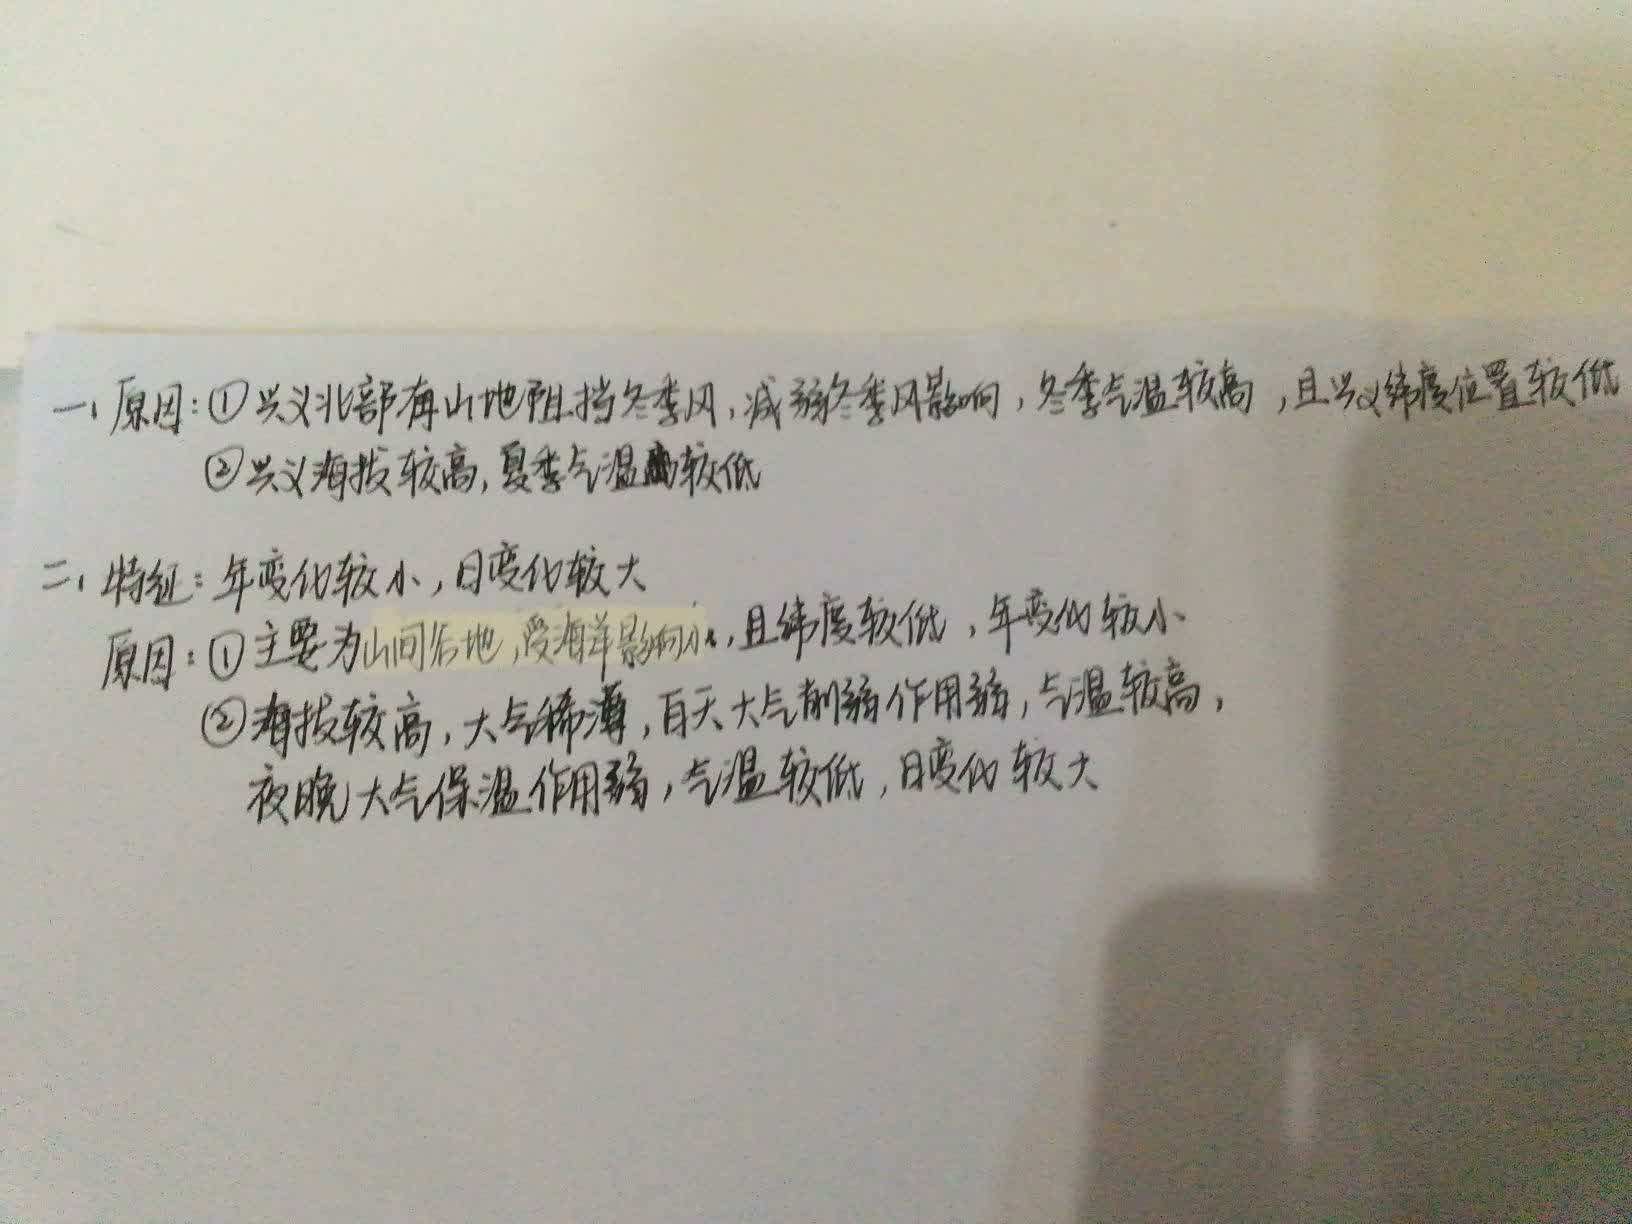 一、原因:①兴义北部有山地阻挡冬季风,减弱冬季风影响,冬季气温较高,且兴义纬度位置较低
②兴义海拔较高,夏季气温较低
二、特征:年变化较小,日变化较大
原因:①主要为山间谷地,受海洋影响小,且纬度较低,年变化较小
②海拔较高,大气稀薄,白天大气削弱作用弱,气温较高,
夜晚大气保温作用弱,气温较低,日变化较大